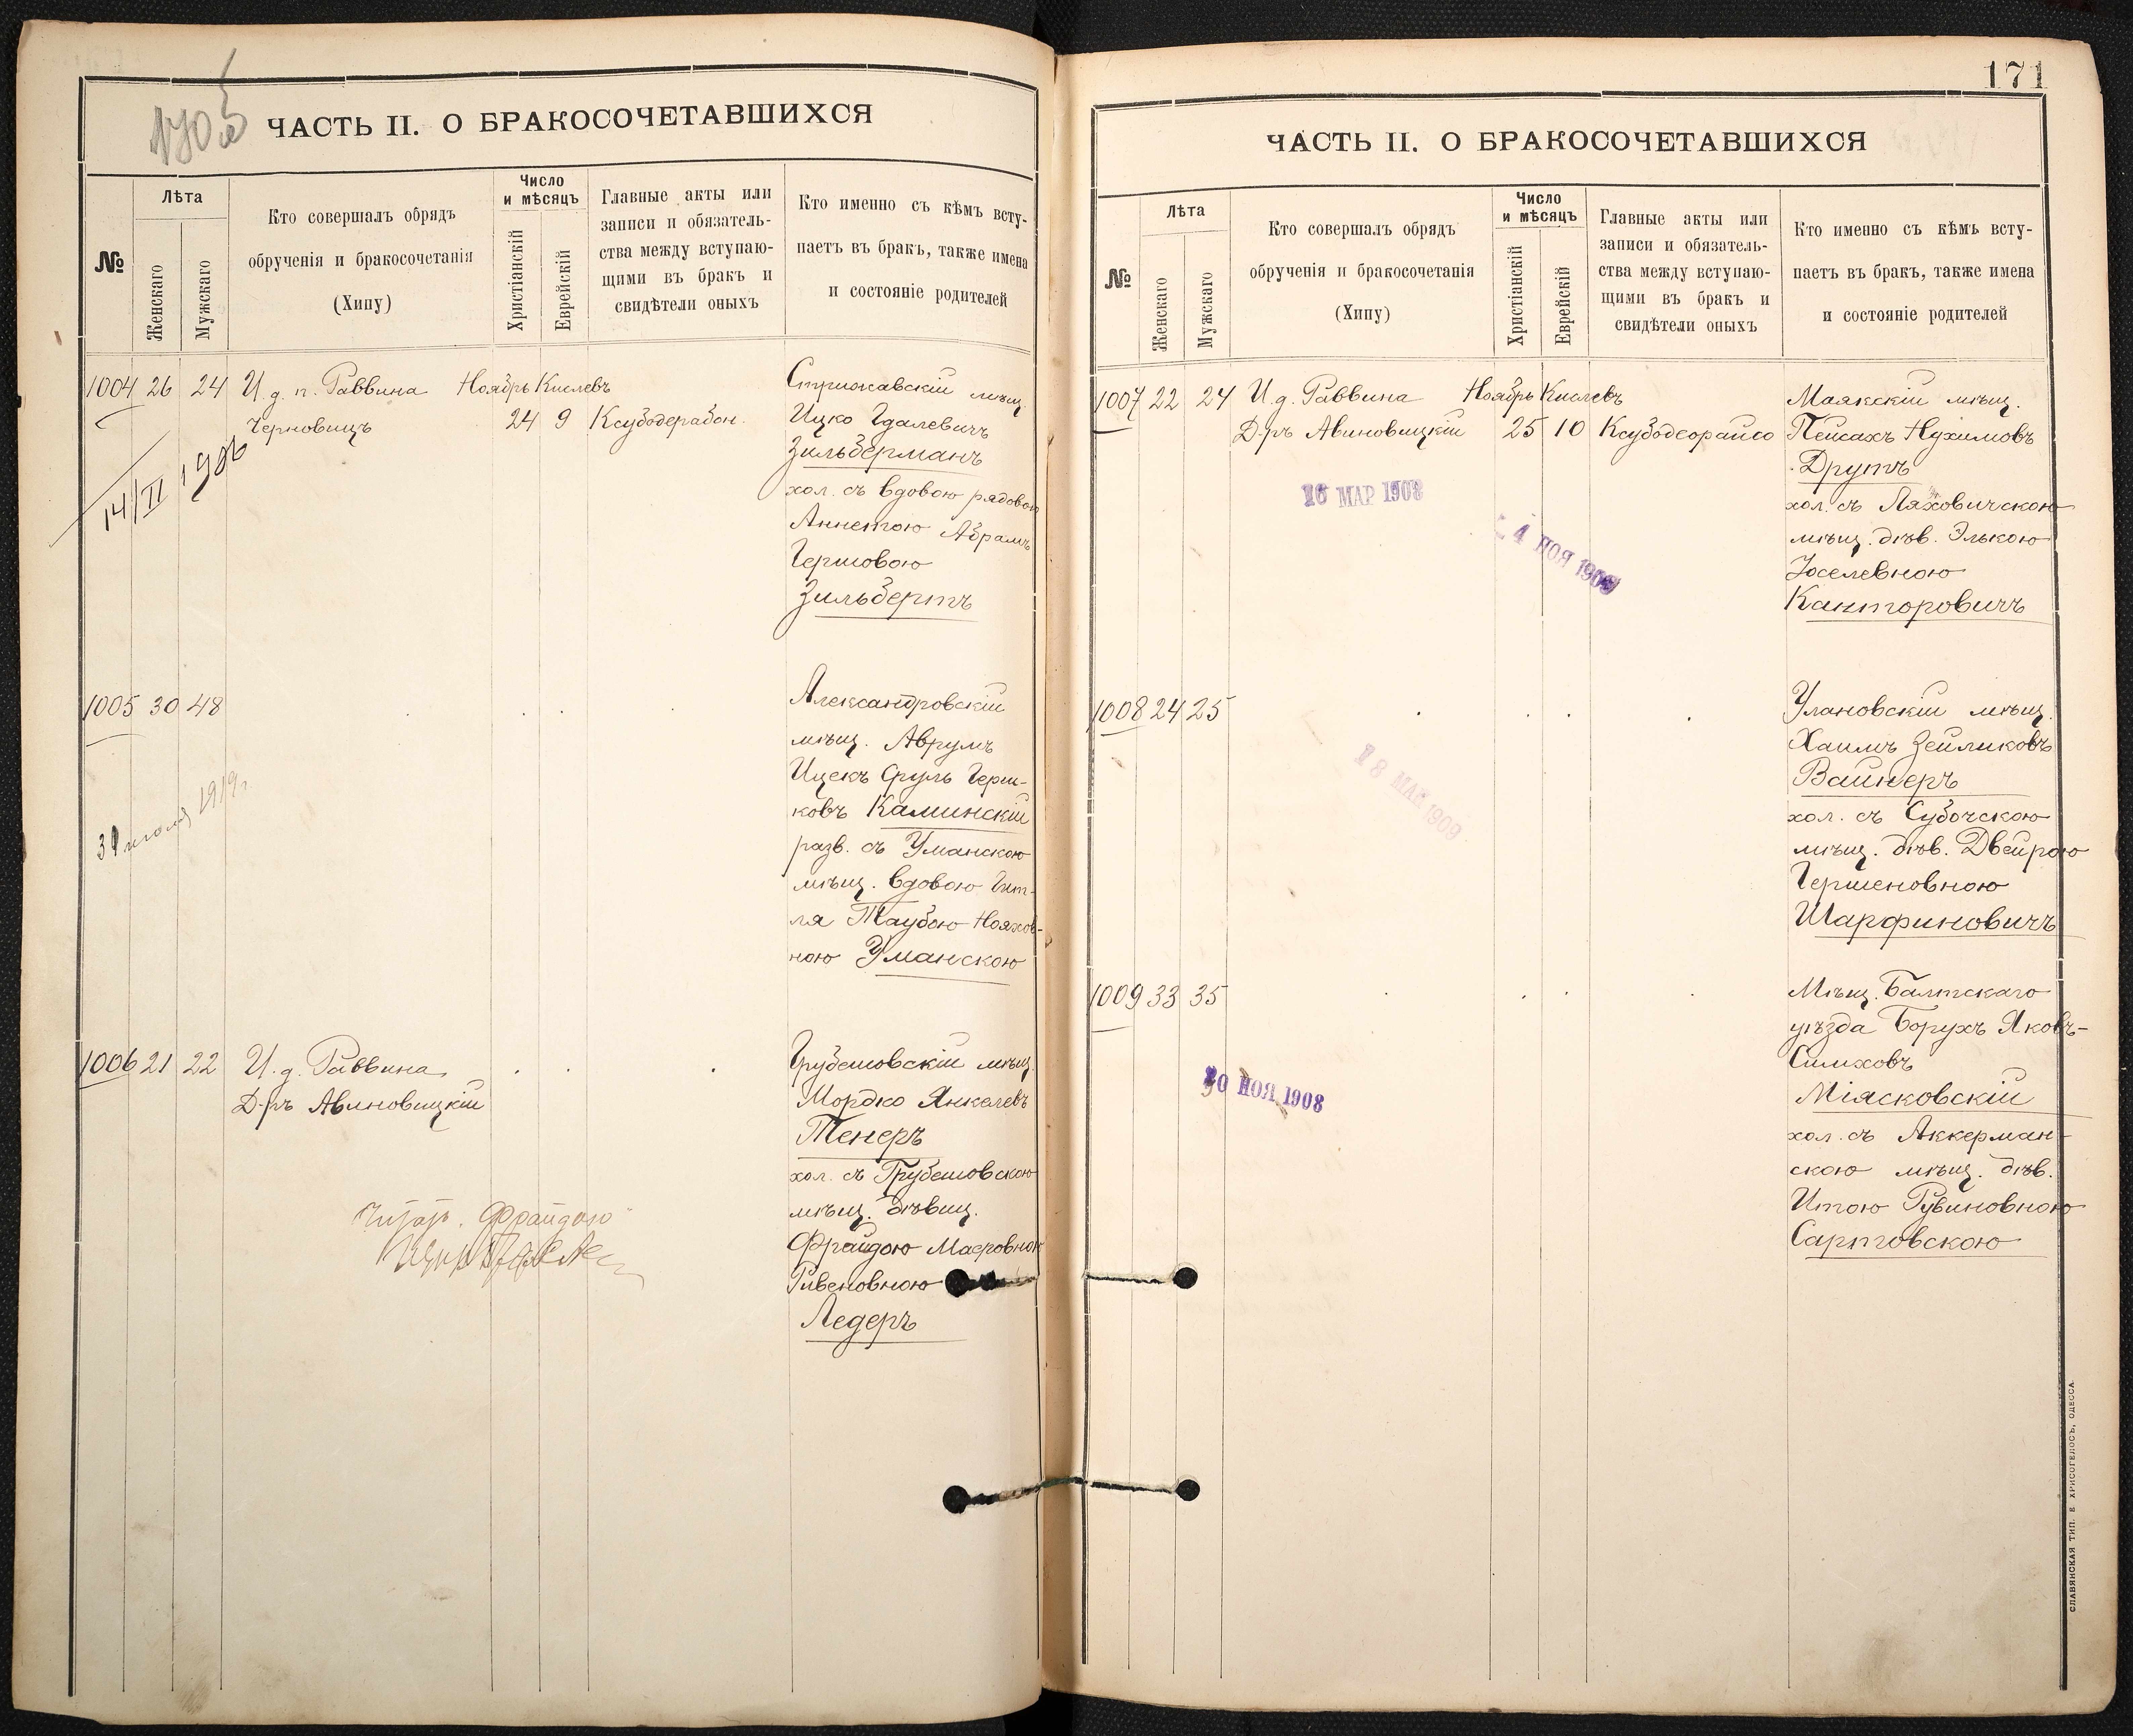 ЧАСТЬ II. О БРАКОСОЧЕТАВШИХСЯ
№
Лѣта
Женскаго
Мужскаго
Кто совершалъ обрядъ
обрученія и бракосочетанія
(Хипу)
Число
и мѣсяцъ
Христіанскій
Еврейскій
Главные акты или
записи и обязатель-
ства между вступаю-
щими въ бракъ и
свидѣтели оныхъ
Кто именно съ кѣмъ всту-
паетъ въ бракъ, также имена
и состояніе родителей
1004 26 24 И. д. п. Раввина Ноябрь Кислевъ
Черновицъ 24 9 Ксубодерабон.
14/II 1906
Стрижавскій мѣщ.
Ицко Гдалевичъ
Зильберманъ
хол. съ вдовою рядовою
Аннетою Абрамъ
Гершовою
Зильбертъ
1005 30 48
31 июля 1919г.
Александровскій
мѣщ. Аврумъ
Ицекъ Сруль Герш-
ковъ Каминскій
разв. съ Уманскою
мѣщ. вдовою Гит-
ля Таубою Нояхов-
ною Уманскою
1006 21 22 И. д. Раввина
Д-ръ Авиновицкій
Грубешовскій мѣщ.
Мордко Янкелевъ
Тенеръ
хол. съ Грубешовскою
мѣщ. дѣвиц.
Фрайдою Маеровною
Ривеновною
Ледеръ
Читать. Фрайдою
171
ЧАСТЬ II. О БРАКОСОЧЕТАВШИХСЯ
№
Лѣта
Женскаго
Мужскаго
Кто совершалъ обрядъ
обрученія и бракосочетанія
(Хипу)
Число
и мѣсяцъ
Христіанскій
Еврейскій
Главные акты или
записи и обязатель-
ства между вступаю-
щими въ бракъ и
свидѣтели оныхъ
Кто именно съ кѣмъ всту-
паетъ въ бракъ, также имена
и состояніе родителей
1007 22 24 И. д. Раввина Ноябрь Кислевъ
Д-ръ Авиновицкій 25 10 Ксубодеорайсо
16 МАР 1908
4 НОЯ
Маякскій мѣщ.
Пейсахъ Нухимовъ
Друтъ
хол. съ Ляховичскою
мѣщ. дѣв. Элькою
Іоселевною
Канторовичъ
1008 24 25
18 МАР 1909
Улановскій мѣщ.
Хаимъ Зейликовъ
Вайнеръ
хол. съ Субочскою
мѣщ. дѣв. Двейрою
Гершеновною
Шарфиновичъ
1009 33 35
20 НОЯ 1908
Мѣщ. Балтскаго
уѣзда Борухъ Яковъ-
Симховъ
Міясковскій
хол. съ Аккерман-
скою мѣщ. дѣв.
Итою Рувиновною
Сартовскою
СЛАВЯНСКАЯ ТИП. Е. ХРИСОГЕЛОСЪ, ОДЕССА.